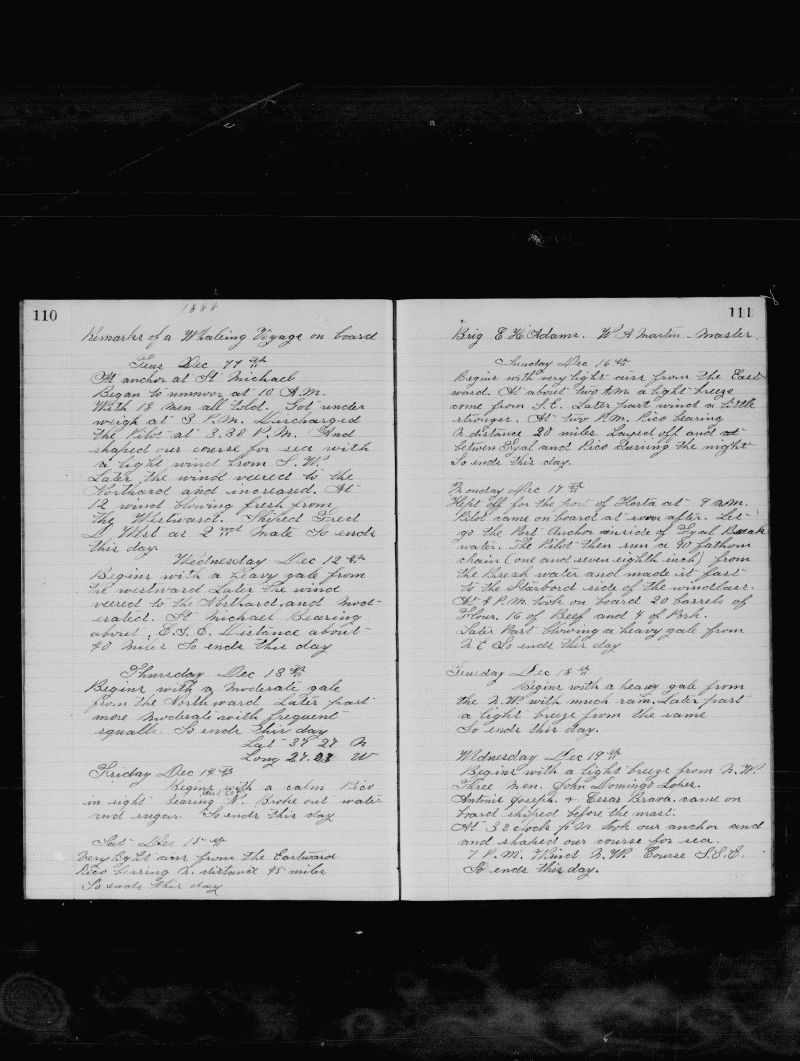 110
1888
Remarks of a Whaleing Voyage on board
Tues Dec 11 th
At anchor at St Michael
Began to unmoor at 10 A.M.
With 18 men all told. Got under
weigh at 3 P.M. Discharged
the Pilot at 3.30 P.M. And
shaped our course for sea with
a light wind from S.W.
Later the wind veered to the
Northard and increased. At
12 wind blowing fresh from
the Westward. Shiped Fred
D West as 2nd mate So ends
this day.
Wednesday Dec 12 th
Begins with a heavy gale from
the westward Later the wind
veered to the Northard and mod-
erated. St Michael Bearing
about E.S.E. Distance about
40 miles So ends this day
Thursday Dec 13 th
Begins with a moderate gale
from the Northward Later part
more moderate with frequent
squalls. So ends this day
Lat 37 27 N
Long 27.03 W
Friday Dec 14 th
Begins with a calm Pico
in sight bearing N. Broke out water
and sugar So ends this day
Sat Dec 15 th
Very light airs from the Eastward
Pico bearing N. distant 45 miles
So ends this day
111
Brig E. H. Adams. W A Martin Master.
Sunday Dec 16 th
Begins with very light airs from the East
ward. At about two A.M. a light breeze
come from S.E. Later part wind a little
stronger. At two P.M. Pico bearing
N distance 20 miles Layed off and at
betwen Fyal and Pico during the night
So ends this day.
Monday Dec 17 th
Kept off for the port of Horta at 9 a.m.
Pilot came on board at soon after. Let
go the Port Anchor inside of Fyal Break
water. The Pilot then run a 90 fathom
chain (one and seven eighth inch) from
the Break water and made it fast
to the Starbord side of the windlass.
At 4 P.M. took on board 20 barrels of
Flour. 16 of Beef and 4 of Pork.
Later Part blowing a heavy gale from
N.E So ends this day
Teusday Dec 18 th
Begins with a heavy gale from
the N.W. with much rain. Later part
a light breeze from the same
So ends this day.
Wednesday Dec 19 th
Begins with a light breeze from N.W.
Three men. John Domingo Lopes.
Antone Joseph. & Cesar Brava. came on
board shiped before the mast.
At 3 o clock P.M took our anchor and
and shaped our course for sea.
7 P.M. Wind N.W. Course S.S.E.
So ends this day.